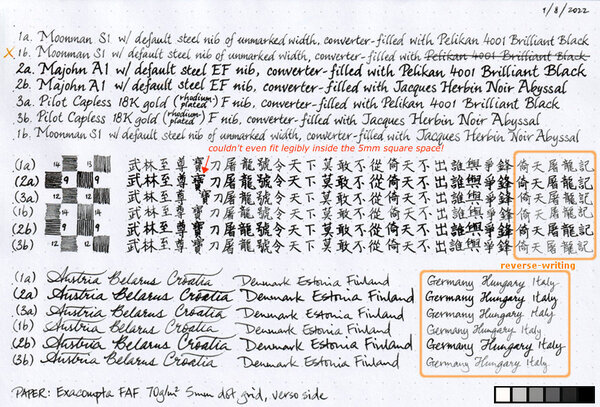 1/8/2022
1a. Moonman S1 w/ default steel nib of unmarked width, converter-filled with Pelikan 4001 Brilliant Black
x 1b. Moonman S1 w/ default steel nib of unmarked width, converter-filled with Pelikan 4001 Brilliant Black
2a. Majohn A1 w/ default steel EF nib, converter-filled with Pelikan 4001 Brilliant Black
2b. Majohn A1 w/ default steel EF nib, converter-filled with Jacques Herbin Noir Abyssal
3a. Pilot Capless 18K gold (rhodium-plated) F nib, converter-filled with Pelikan 4001 Brilliant Black
3b. Pilot Capless 18K gold (rhodium-plated) F nib, converter-filled with Jacques Herbin Noir Abyssal
1b. Moonman S1 w/ default steel nib of unmarked width, converter-filled with Jacques Herbin Noir Abyssal
couldn't even fit legibly inside the 5mm square space!
(1a) 14 13 武林至尊寶刀屠龍號令天下莫敢不從倚天不出誰與爭鋒倚天屠龍記
(2a) 9 9 武林至尊寶刀屠龍號令天下莫敢不從倚天不出誰與爭鋒倚天屠龍記
(3a) 12 12 武林至尊寶刀屠龍號令天下莫敢不從倚天不出誰與爭鋒倚天屠龍記
(1b) 14 14 武林至尊寶刀屠龍號令天下莫敢不從倚天不出誰與爭鋒倚天屠龍記
(2b) 9 9 武林至尊寶刀屠龍號令天下莫敢不從倚天不出誰與爭鋒倚天屠龍記
(3b) 12 12 武林至尊寶刀屠龍號令天下莫敢不從倚天不出誰與爭鋒倚天屠龍記
reverse-writing
(1a) Austria Belarus Croatia Denmark Estonia Finland Germany Hungary Italy
(2a) Austria Belarus Croatia Denmark Estonia Finland Germany Hungary Italy
(3a) Austria Belarus Croatia Denmark Estonia Finland Germany Hungary Italy
(1b) Austria Belarus Croatia Denmark Estonia Finland Germany Hungary Italy
(2b) Austria Belarus Croatia Denmark Estonia Finland Germany Hungary Italy
(3b) Austria Belarus Croatia Denmark Estonia Finland Germany Hungary Italy
PAPER: Exacompta FAF 70g/m² 5mm dot grid, verso side